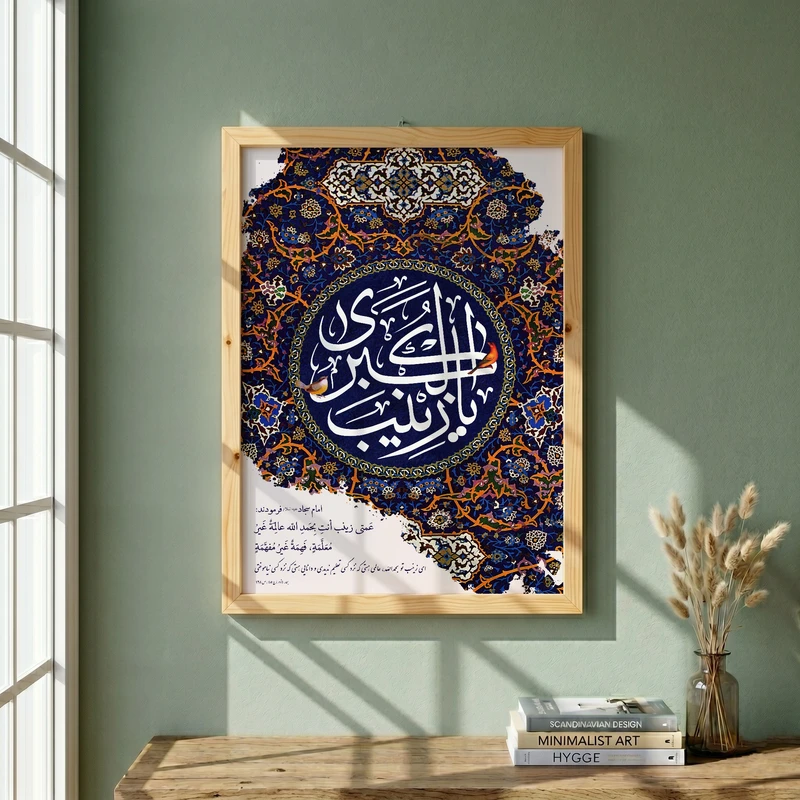 یا زینب الکبری
امام سجاد علیه السلام فرمودند:
عَمتی زینب أنتِ بِحَمدِ الله عالِمَةٌ غَیرُ
مُعَلَّمَةٍ، فَهِمَةٌ غَیرُ مُفَهَّمَةٍ
ای زینب تو بحمدالله، عالمی هستی که نزد کسی تعلیم ندیدی و دانایی هستی که نزد کسی نیاموختی
SCANDINAVIAN DESIGN
MINIMALIST ART
HYGGE